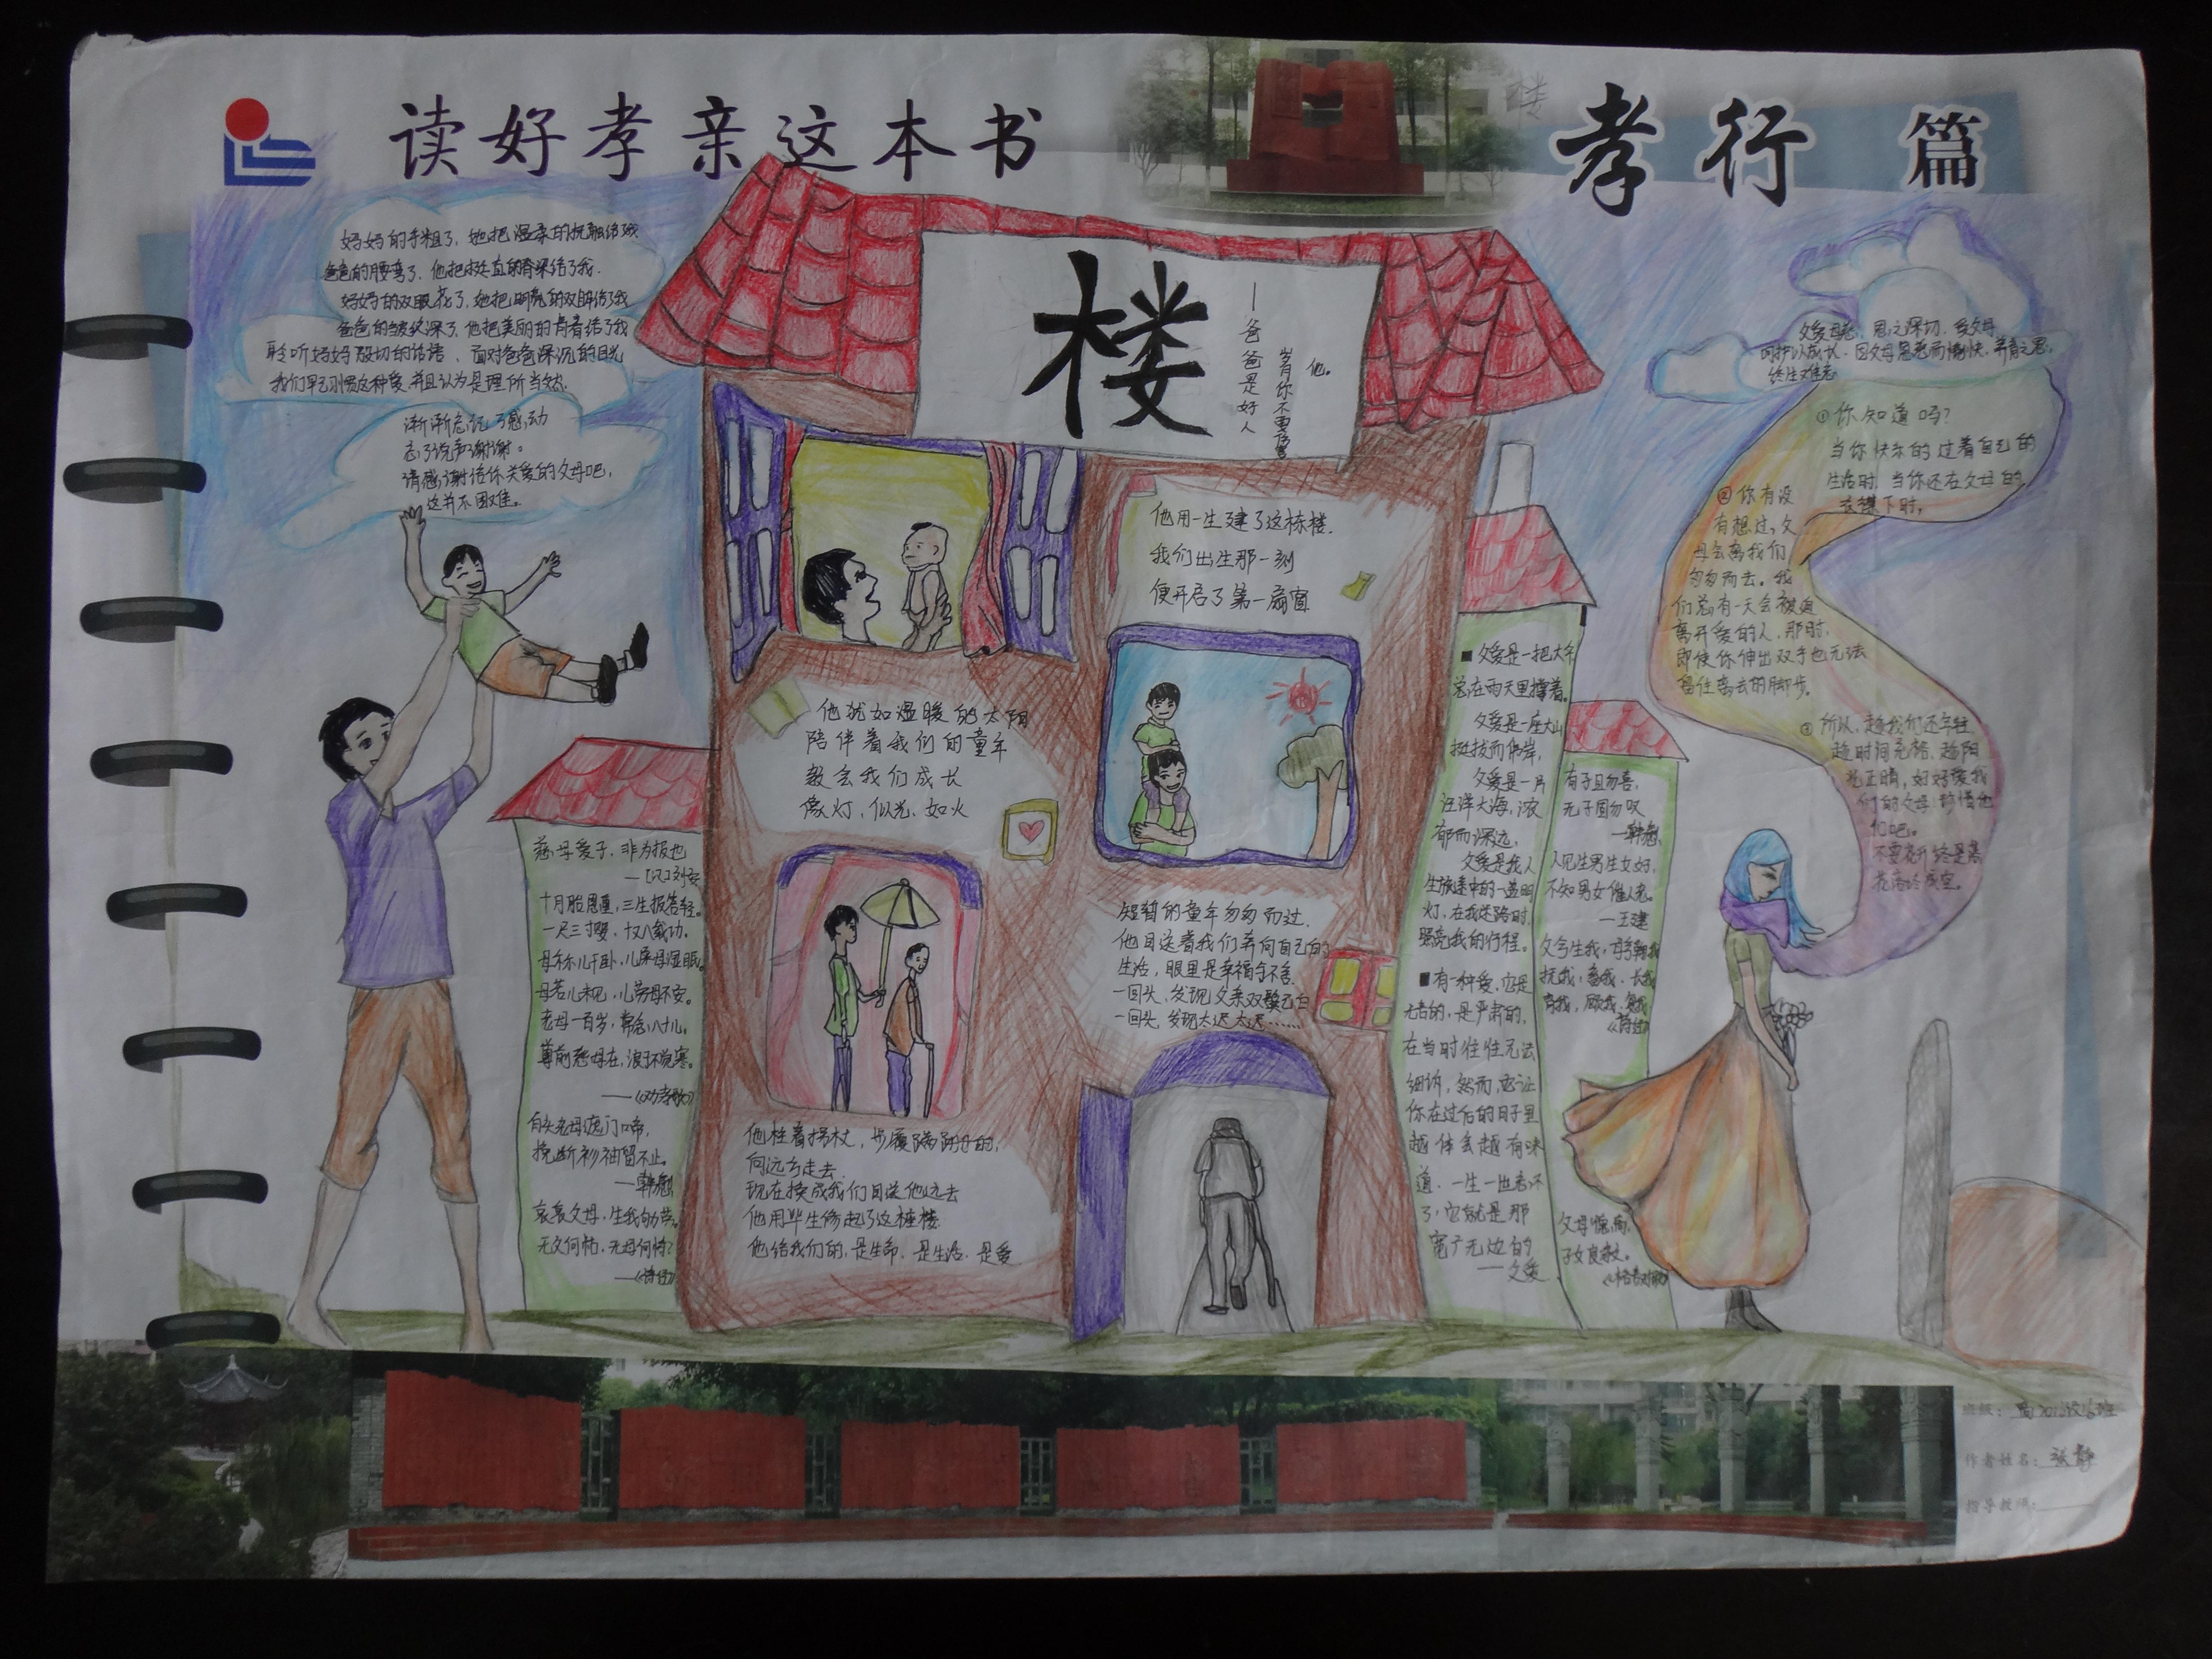 读好孝亲这本书
楼
孝行 篇
妈妈的手粗了,她把温柔的抚触给我
爸爸的腰弯了,他把挺直的脊梁给了我.
妈妈的双眼花了,她把明亮的双眸给了我
爸爸的皱纹深了,他把美丽的青春给了我
聆听妈妈殷切的话语、面对爸爸深沉的目光
我们早已习惯这种爱,并且认为是理所当然.
渐渐忘记了感动
忘了说声谢谢。
请感谢给你关爱的父母吧,
这并不困难。
楼
—爸爸是好人
岁有你不要伤
他。
他用一生建了这栋楼.
我们出生那一刻
便开启了第一扇窗
他犹如温暖的太阳
陪伴着我们的童年
教会我们成长
像灯,似光,如火
短暂的童年匆匆而过.
他目送着我们奔向自己的
生活,眼里是幸福与不舍.
一回头,发现父亲双鬓已白
一回头,发现太迟太迟……
他拄着拐杖,步履蹒跚的,
向远方走去.
现在换成我们目送他远去
他用毕生修起了这桩楼
他给我们的,是生命,是生活,是爱
慈母爱子,非为报也
—〔汉〕刘安
十月胎恩重,三生报答轻。
一尺三寸婴,十又八载功.
母称儿干卧,儿屎母湿眠。
母苦儿未见,儿劳母不安。
老母一百岁,常念八十儿。
尊前慈母在,浪子不觉寒。
——《劝孝歌》
白头老母遮门啼,
挽断衫袖留不止。
—韩愈
哀哀父母,生我劬劳。
无父何怙,无母何恃?
—《诗经》
■父爱是一把大伞
总在雨天里撑着。
父爱是一座大山
挺拔而伟岸,
父爱是一片
汪洋大海,浓
郁而深远,
父爱是我人
生旅途中的一盏明
灯,在我迷路时,
照亮我的行程。
■有一种爱,它是
无言的,是严肃的,
在当时往往无法
细诉,然而,它让
你在过后的日子里
越体会越有味
道,一生一世忘不
了,它就是那
宽广无边的
——父爱
有子且勿喜,
无子固勿叹
—韩愈
人见生男生女好,
不知男女催人老。
—王建
父兮生我,母兮鞠我
抚我,畜我,长我
育我,顾我,复我
《诗经》
父母德高,
子女良教。
《格言对联》
父爱母慈,恩之深切.受父母
呵护以成长.因父母恩慈而愉快.养育之恩,
终生难忘
①你知道吗?
当你快乐的过着自己的
生活时,当你还在父母的
衣襟下时,
②你有没
有想过,父
母会离我们
匆匆而去,我
们总有一天会被迫
离开爱的人,那时,
即使你伸出双手也无法
留住离去的脚步。
③所以,趁我们还年轻,
趁时间充裕,趁阳
光正晴,好好爱我
们的父母,珍惜他
们吧。
不要花开终是离
花落终成空。
班级:高2013级16班
作者姓名:张静
指导教师: